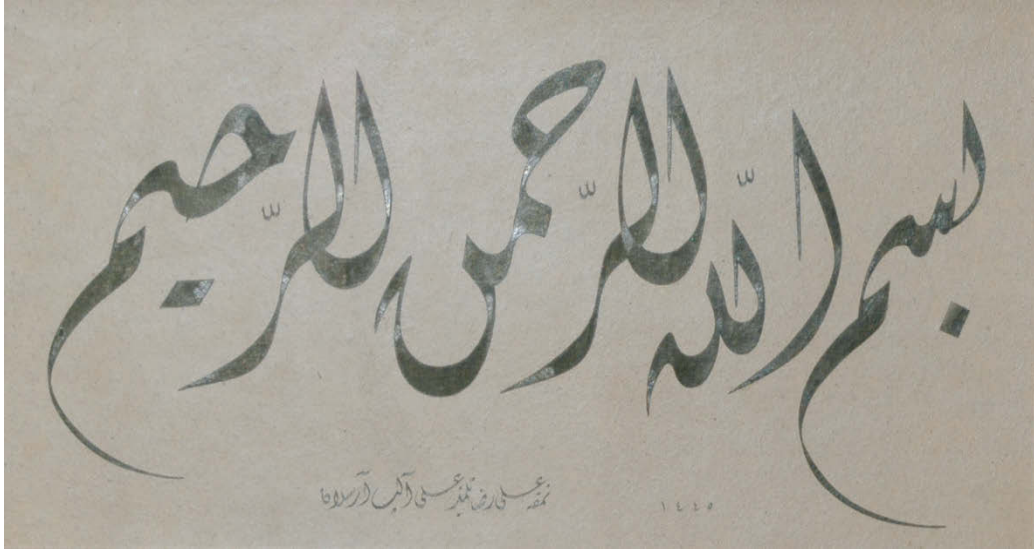 بسم الله الرحمن الرحيم
نمقه علي رضا تلميذ علي آلپ آرسلان ١٤٤٥